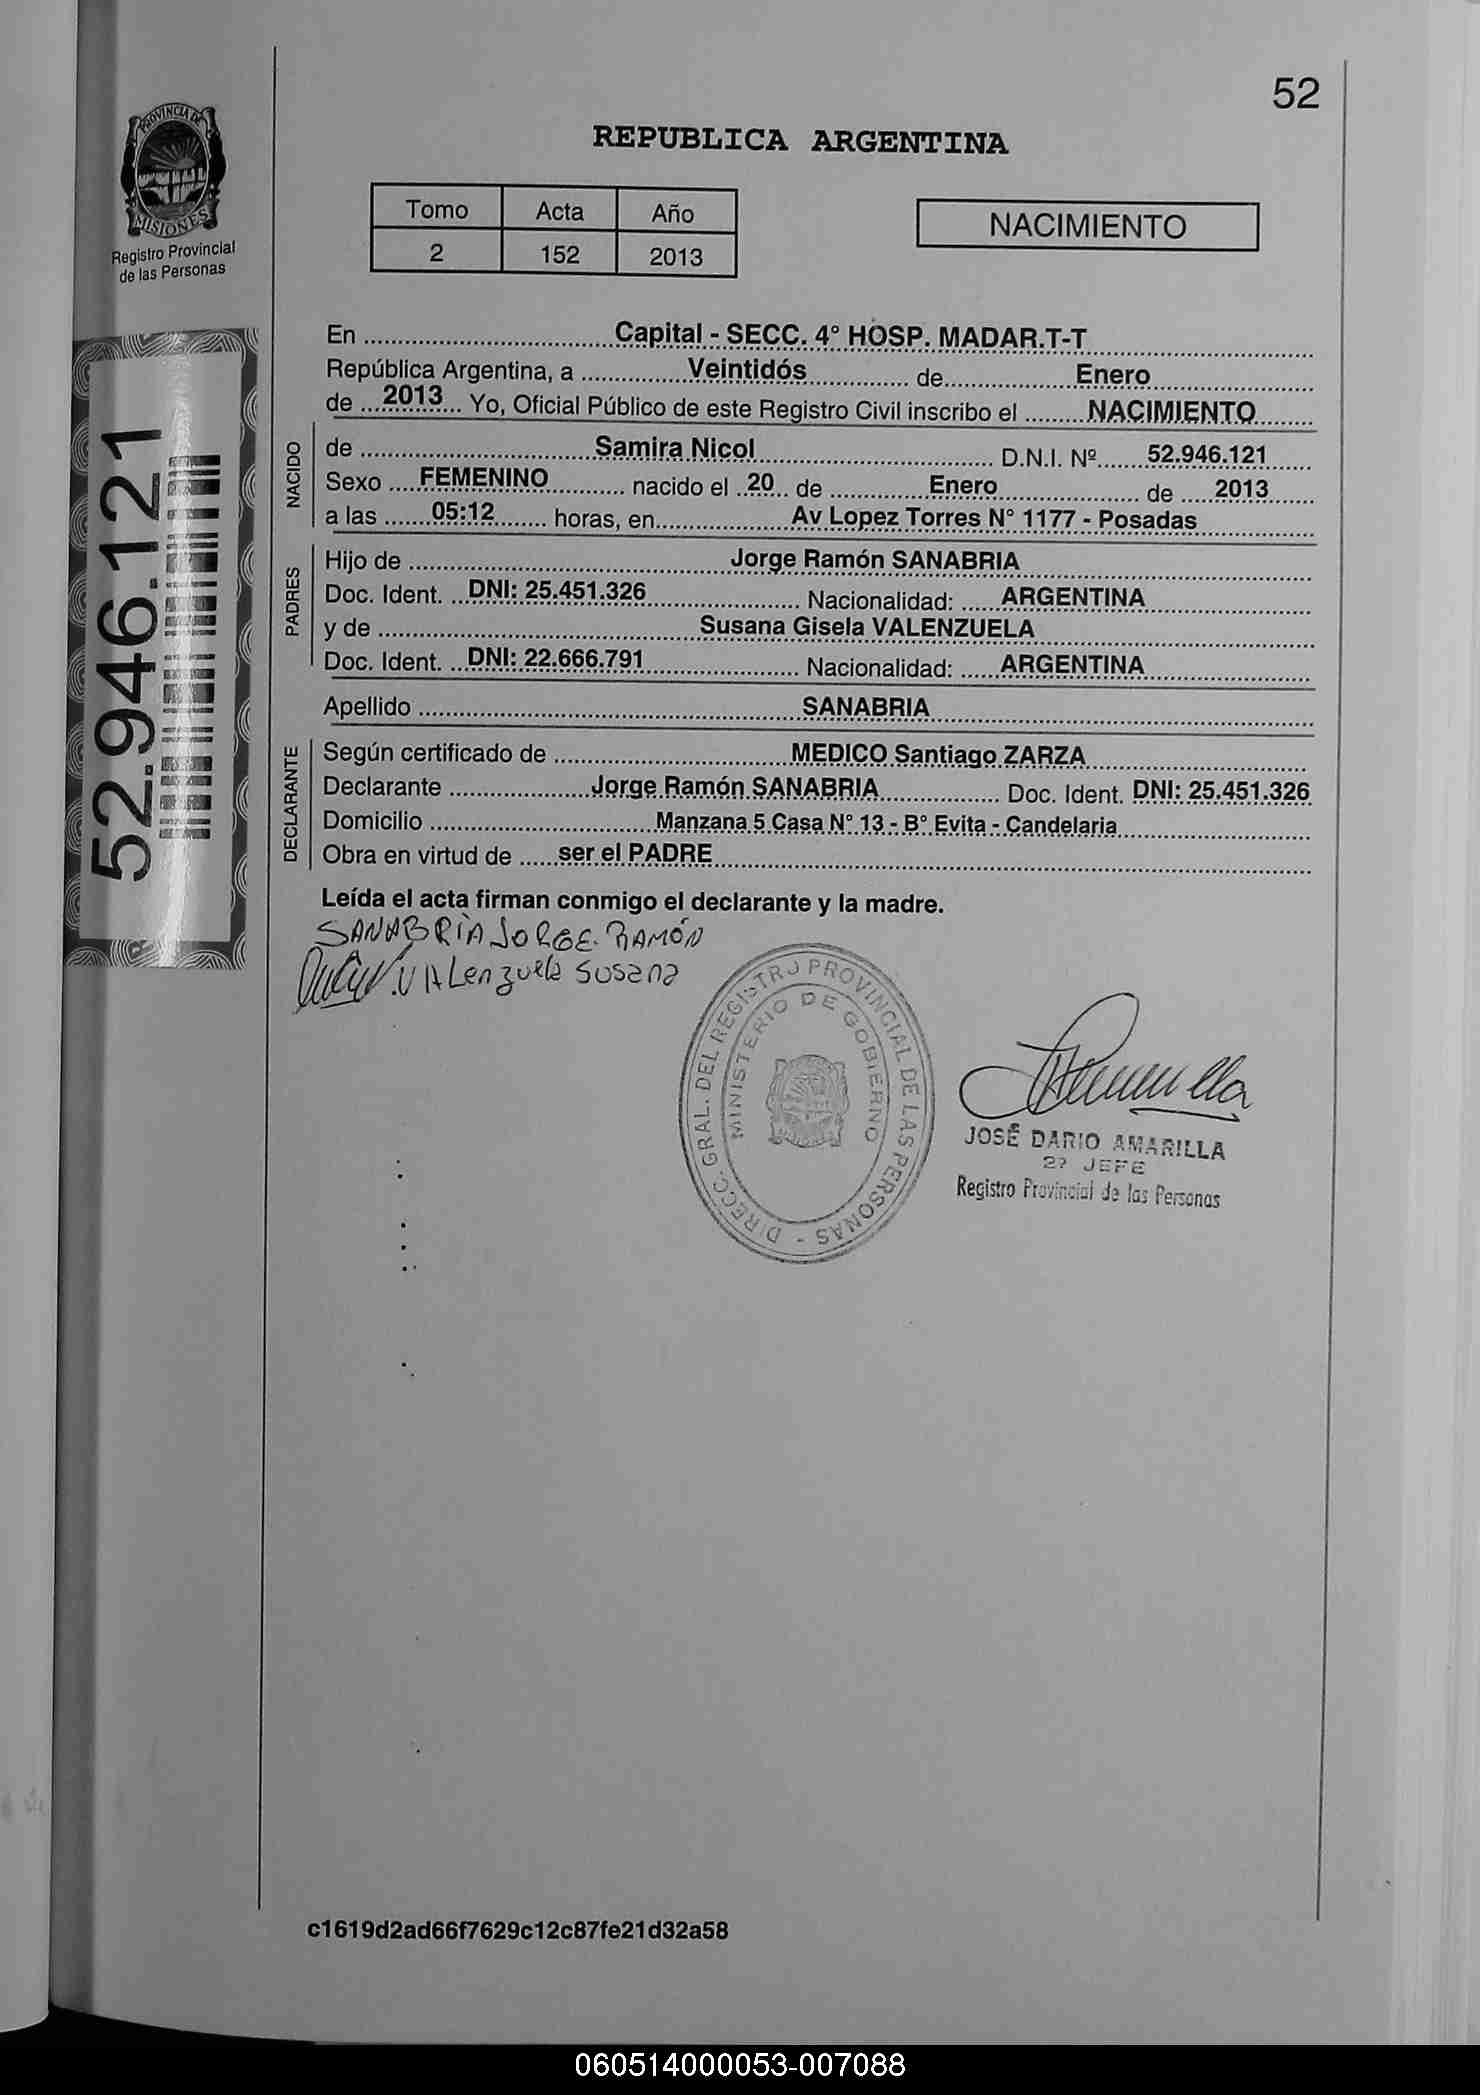 52
PROVINCIA DE
MISIONES
Registro Provincial
de las Personas
REPUBLICA ARGENTINA
Tomo Acta Año
2 152 2013
NACIMIENTO
52.946.121
En ........ Capital - SECC. 4° HOSP. MADAR.T-T ........
República Argentina, a ........ Veintidós ........ de ........ Enero ........
de .... 2013 ... Yo, Oficial Público de este Registro Civil inscribo el ........ NACIMIENTO ........
NACIDO
de ........ Samira Nicol ........ D.N.I. Nº ...... 52.946.121 ......
Sexo .... FEMENINO ........ nacido el .. 20 .. de ........ Enero ........ de .... 2013 ......
a las ...... 05:12 ........ horas, en ........ Av Lopez Torres N° 1177 - Posadas ........
PADRES
Hijo de ........ Jorge Ramón SANABRIA ........
Doc. Ident. ... DNI: 25.451.326 ........ Nacionalidad: ..... ARGENTINA ........
y de ........ Susana Gisela VALENZUELA ........
Doc. Ident. ... DNI: 22.666.791 ........ Nacionalidad: ..... ARGENTINA ........
Apellido ........ SANABRIA ........
DECLARANTE
Según certificado de ........ MEDICO Santiago ZARZA ........
Declarante ........ Jorge Ramón SANABRIA ........ Doc. Ident. DNI: 25.451.326
Domicilio ........ Manzana 5 Casa N° 13 - B° Evita - Candelaria ........
Obra en virtud de ..... ser el PADRE ........
Leída el acta firman conmigo el declarante y la madre.
SANABRÌA JORGE. RAMÓN
VALenzuela Susana
DIRECC. GRAL. DEL REGISTRO PROVINCIAL DE LAS PERSONAS -
MINISTERIO DE GOBIERNO
JOSÉ DARIO AMARILLA
2º JEFE
Registro Provincial de las Personas
c1619d2ad66f7629c12c87fe21d32a58
060514000053-007088